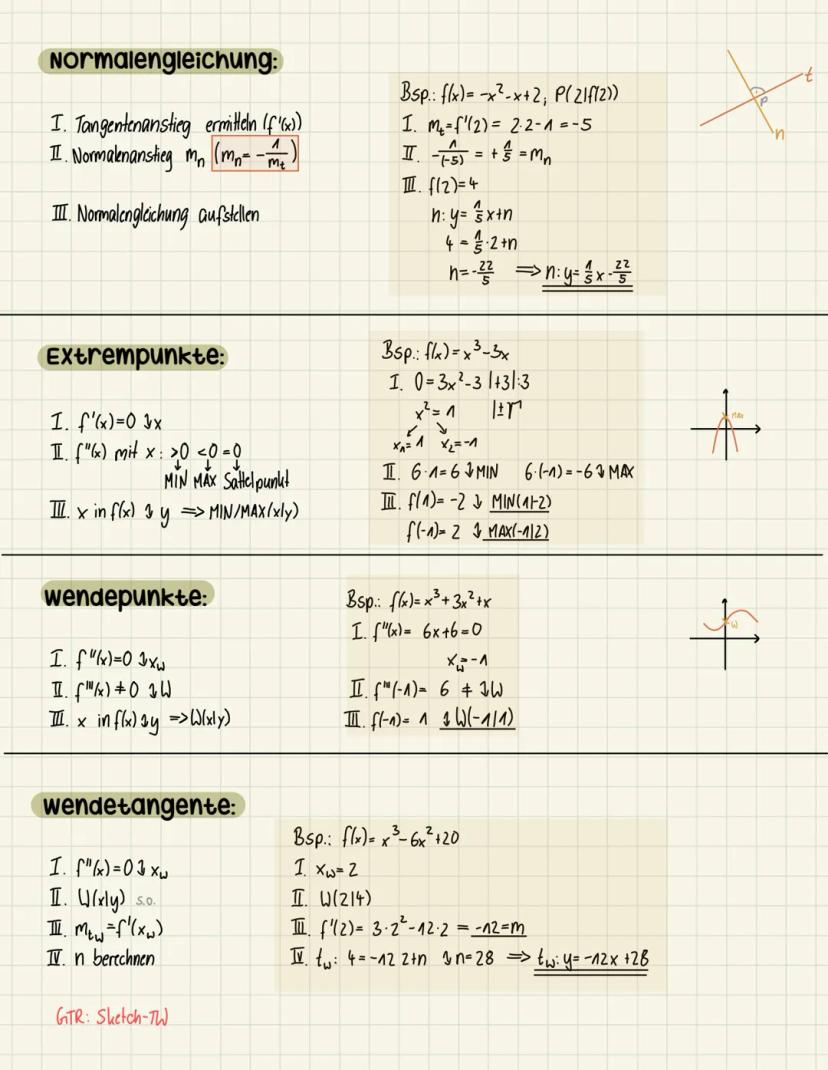 Normalengleichung:
I. Tangentenanstieg ermitteln (f'(x))
II. Normalenanstieg mₙ (mₙ = -1/mₜ)
III. Normalengleichung aufstellen
Bsp.: f(x) = -x²-x+2; P(2|f(2))
I. mₜ=f'(2) = 2·2-1 = -5
II. -1/(-5) = +1/5 = mₙ
III. f(2)=4
n: y= 1/5 x+n
4 = 1/5·2+n
n=-22/5 ⟹ n: y= 1/5 x - 22/5
t
P
n
Extrempunkte:
I. f'(x)=0 ↯x
II. f"(x) mit x: >0 <0 =0
↓ ↓ ↓
MIN MAX Sattelpunkt
III. x in f(x) ↯ y ⇒ MIN/MAX(x|y)
Bsp.: f(x) = x³-3x
I. 0=3x²-3 |+3|:3
x²=1 |±√
x₁=1 x₂=-1
II. 6·1=6 ↯ MIN 6·(-1)=-6 ↯ MAX
III. f(1)= -2 ↯ MIN(1|-2)
f(-1)= 2 ↯ MAX(-1|2)
MAX
Wendepunkte:
I. f"(x)=0 ↯x_W
II. f'''(x) ≠ 0 ↯W
III. x in f(x) ↯y ⇒ W(x|y)
Bsp.: f(x)=x³+3x²+x
I. f"(x)= 6x+6=0
x_W=-1
II. f'''(-1)= 6 ≠ ↯W
III. f(-1)= 1 ↯ W(-1|1)
W
Wendetangente:
I. f"(x)=0 ↯ x_W
II. W(x|y) s.o.
III. m_tW=f'(x_W)
IV. n berechnen
Bsp.: f(x)= x³-6x²+20
I. x_W=2
II. W(2|4)
III. f'(2)= 3·2²-12·2 = -12=m
IV. t_W: 4=-12 2+n ↯ n=28 ⟹ t_W: y= -12x +28
GTR: Sketch-TW